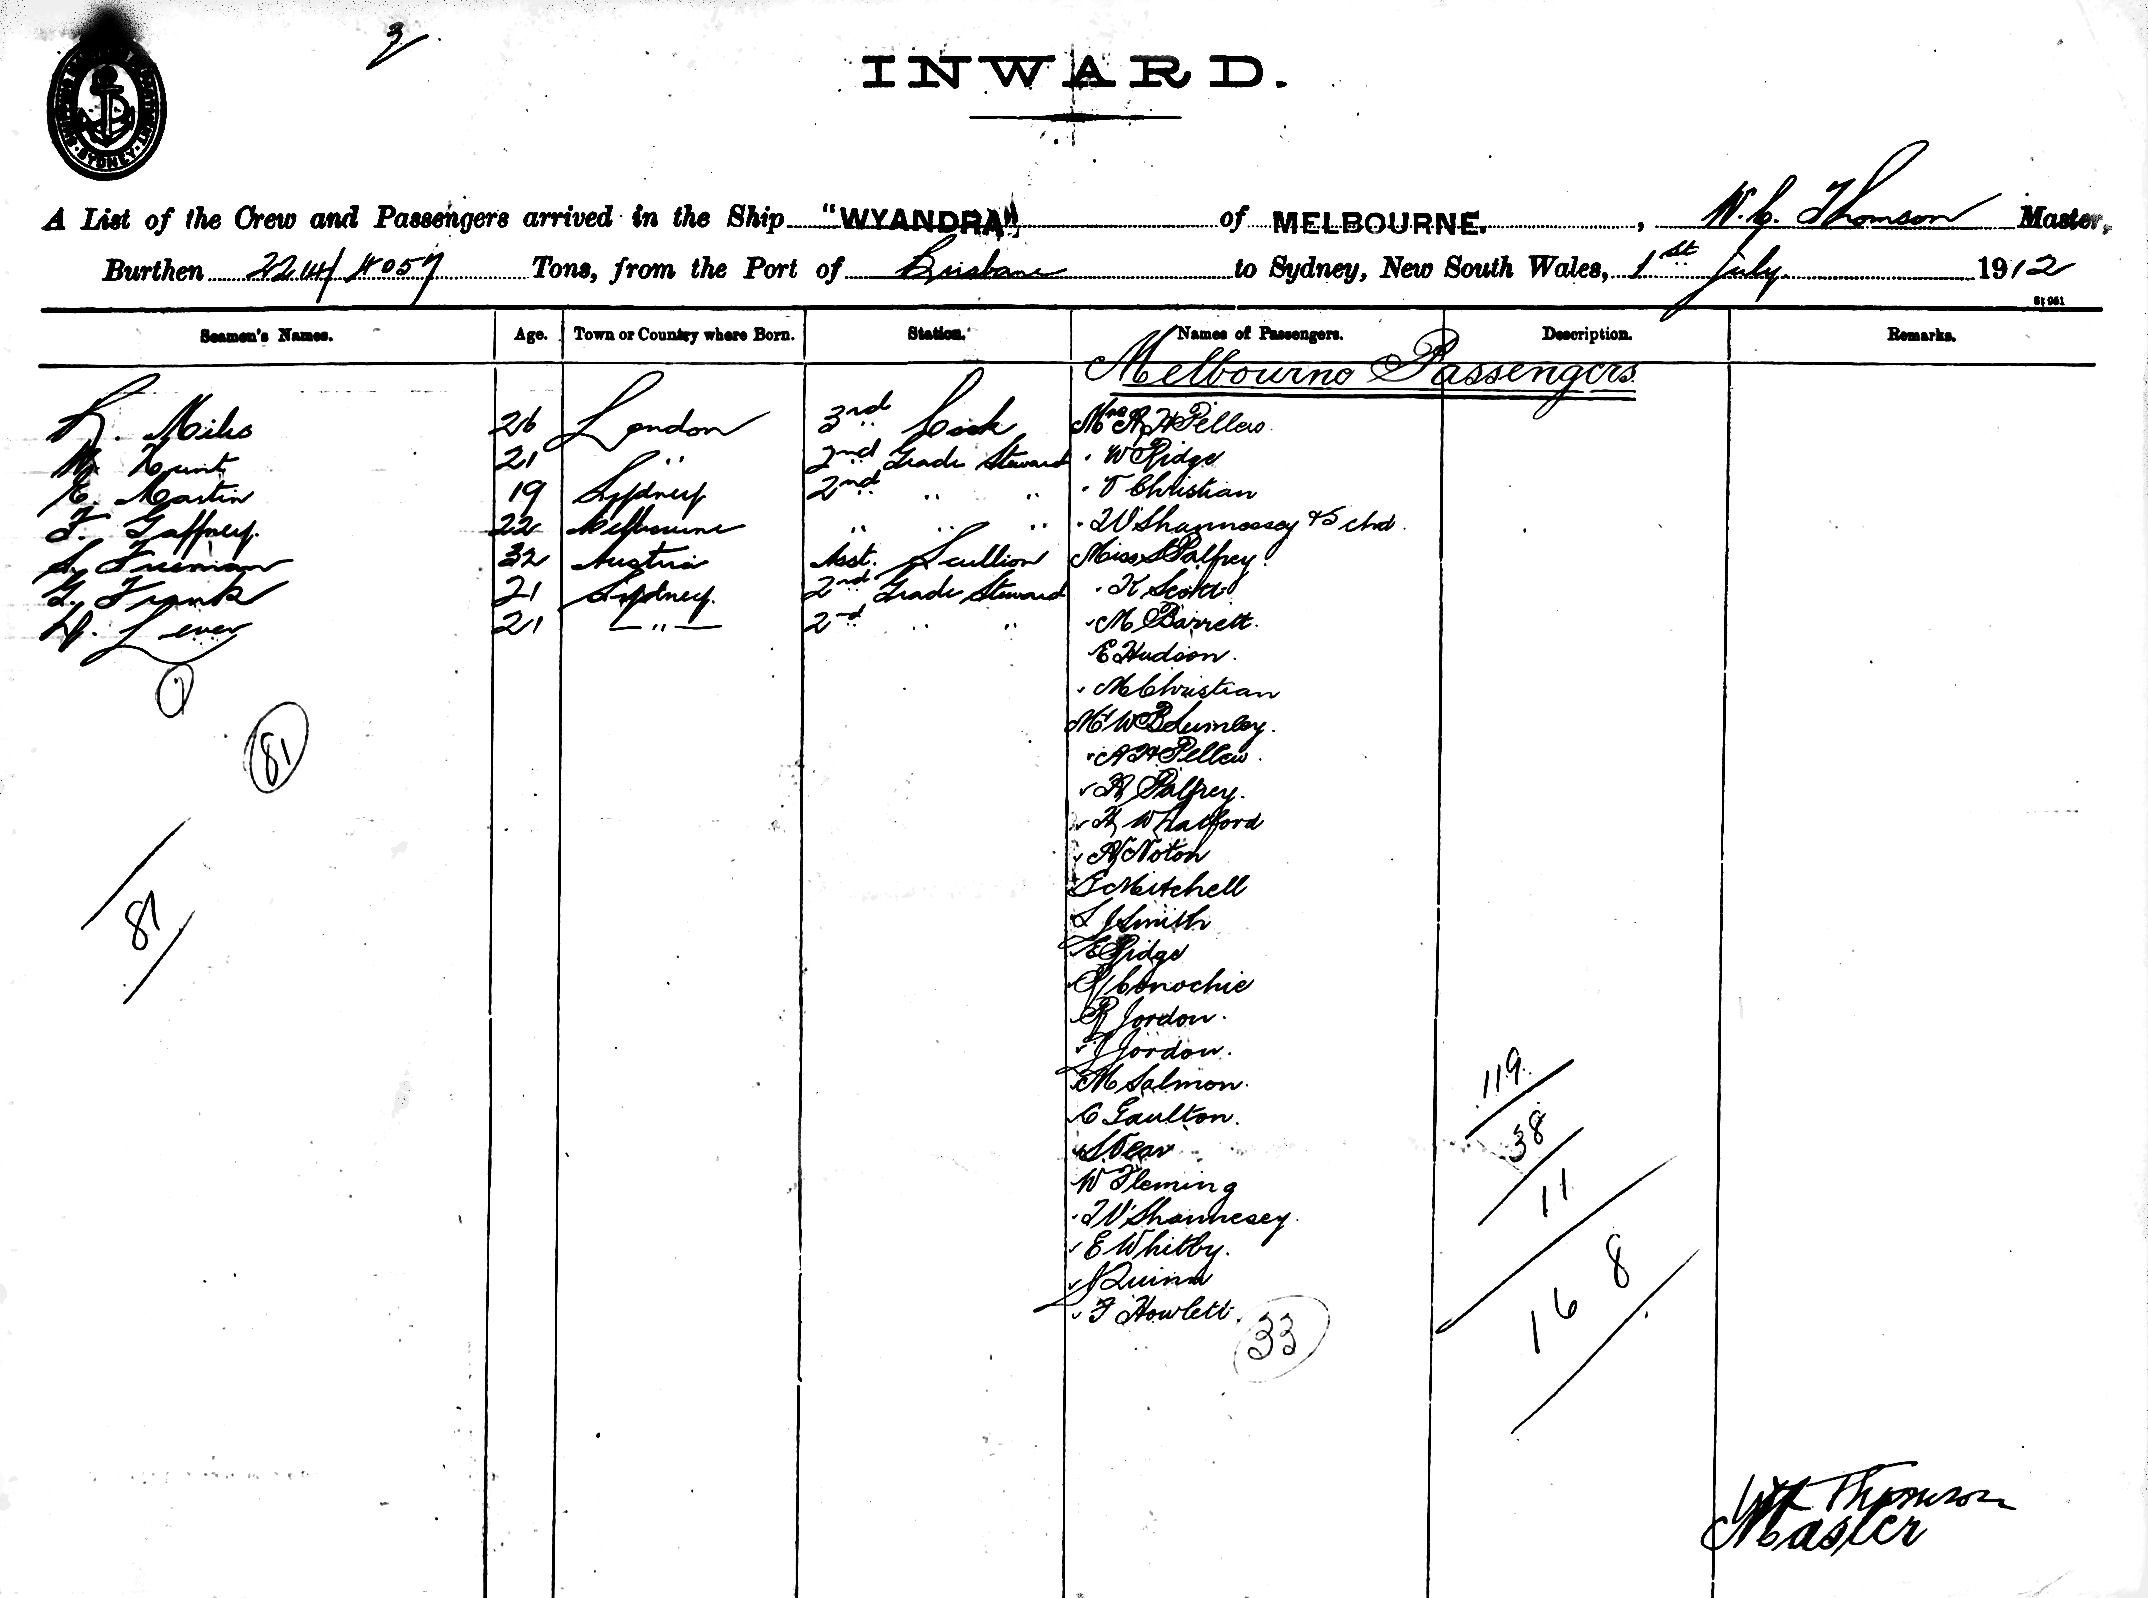 3
INWARD.
SYDNEY
A List of the Crew and Passengers arrived in the Ship "WYANDRA" of MELBOURNE. , W. C. Thomson Master,
Burthen 2241/4057 Tons, from the Port of Brisbane to Sydney, New South Wales, 1st July 1912
Seamen's Names. Age. Town or Country where Born. Station. Names of Passengers. Description. Remarks.
Melbourne Passengers
Miles 26 London 3rd Cook Mrs A H Pellew
Hunt 21 " 2nd Grade Steward " W Ridge
E. Martin 19 Sydney 2nd " " " Christian
F. Gaffney. 22 Melbourne " " " " W Shannessy & 5 chd.
S. Freeman 32 Austria Asst. Scullion Miss S Palfrey
G. Frank 21 Sydney. 2nd Grade Steward " K Scott
Lever 21 — " — 2nd " " " M Barrett.
E Hudson.
" M Christian
Mr W B Lumley.
" A H Pellew.
Palfrey.
H Whatford
Noton
Mitchell
S J Smith
E Ridge
Conochie
R Jordon.
J Jordon.
M Salmon.
C Gaulton.
S Dear
W Fleming
W Shannesey.
E Whitby.
J Quinn
F Howlett.
7
81
81
33
119
38
11
168
Thomson
Master